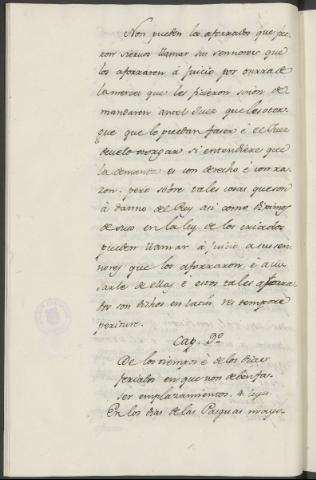 Non pueden los aforrados que fue-
ron siervos llamar sus sennores que
los aforraron à juicio por onrra de
la merced que les ficieron sinon de-
mandaren ante el Juez que les otor-
gue que lo puedan faser è el Juez
develo otorgar si entendiere que
la demanda es con derecho è con ra-
zon. pero sobre tales cosas que son
à danno del Rey asi como diximos
de suso en la ley de los criados
pueden llamar à juicio a sus sen-
nores que los aforraron, è acu-
sarle de ellas è estos tales aforra-
dos son dichos en latin
Cap. 9º
De los tiempos è de los dias
feriados en que non deben fa-
ser emplazamientos. 4. leyes
En los dias de las Pasquas mayo-